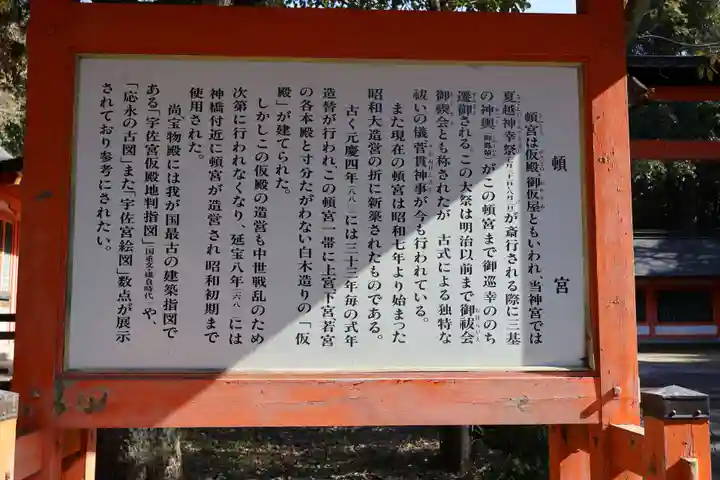 頓宮
頓宮は仮殿、御仮屋ともいわれ、当神宮では
夏越神幸祭が斎行される際に三基
の神輿がこの頓宮まで御巡幸ののち
遷御される。この大祭は明治以前まで御祓会
御禊会とも称されたが、古式による独特な
祓いの儀菅貫神事が今も行われている。
また現在の頓宮は昭和七年より始まった
昭和大造営の折に新築されたものである。
古く元慶四年(八八〇)には三十三年毎の式年
造替が行われ、この頓宮一帯に上宮下宮若宮
の各本殿と寸分たがわない白木造りの「仮
殿」が建てられた。
しかしこの仮殿の造営も中世戦乱のため
次第に行われなくなり、延宝八年(一六八〇)には
神橋付近に頓宮が造営され昭和初期まで
使用された。
尚宝物殿には我が国最古の建築指図で
ある「宇佐宮仮殿地判指図」(国重文・鎌倉時代)や、
「応永の古図」また「宇佐宮絵図」数点が展示
されており参考にされたい。